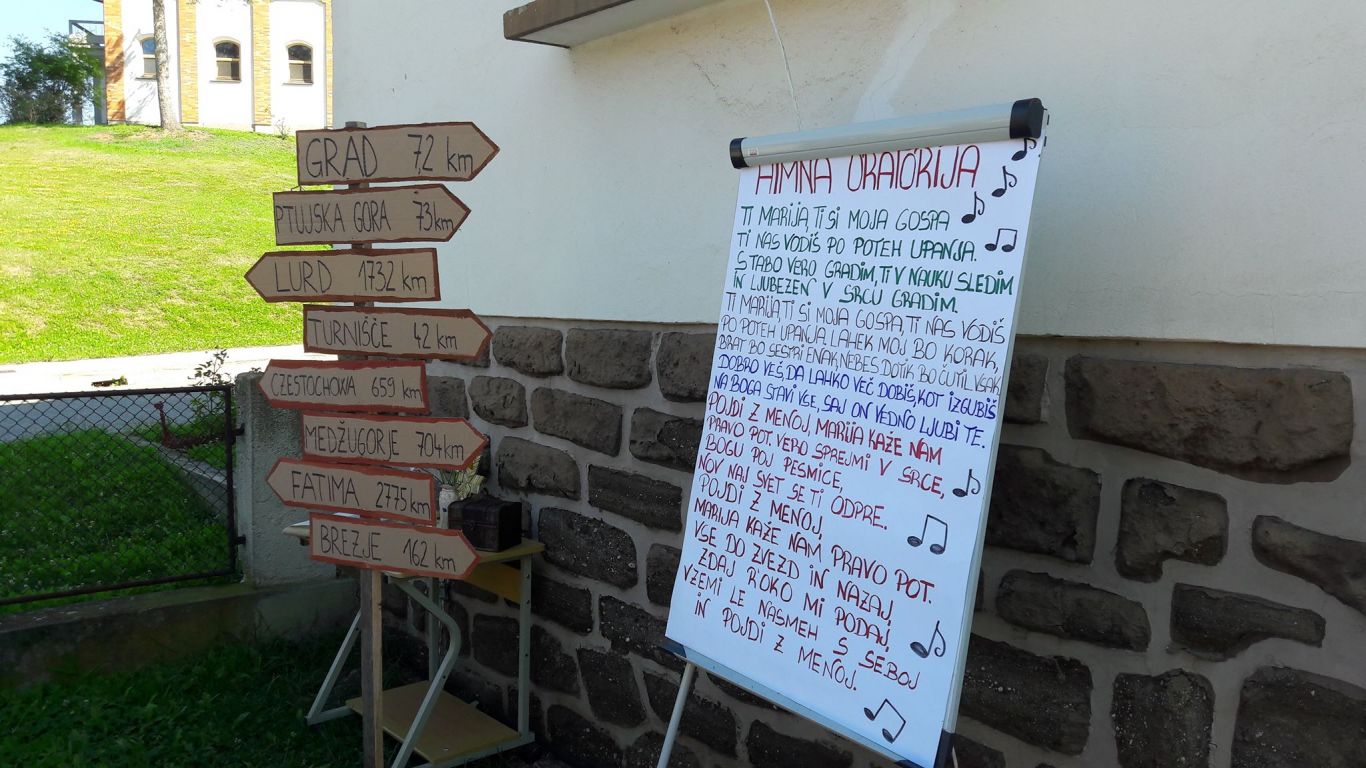 GRAD 7,2 km
PTUJSKA GORA 73km
LURD 1732 km
TURNIŠČE 42 km
CZESTOCHOWA 659 km
MEDŽUGORJE 704km
FATIMA 2775km
BREZJE 162 km
HIMNA ORATORIJA
TI MARIJA, TI SI MOJA GOSPA
TI NAS VODIŠ PO POTEH UPANJA.
S TABO VERO GRADIM, TI V NAUKU SLEDIM
IN LJUBEZEN V SRCU GRADIM.
TI MARIJA, TI SI MOJA GOSPA, TI NAS VODIŠ
PO POTEH UPANJA. LAHEK MOJ BO KORAK,
BRAT BO SESTRI ENAK, NEBES DOTIK BO ČUTIL VSAK.
DOBRO VEŠ, DA LAHKO VEČ DOBIŠ, KOT IZGUBIŠ
NA BOGA STAVI VSE, SAJ ON VEDNO LJUBI TE.
POJDI Z MENOJ, MARIJA KAŽE NAM
PRAVO POT. VERO SPREJMI V SRCE,
BOGU POJ PESMICE,
NOV NAJ SVET SE TI ODPRE.
POJDI Z MENOJ,
MARIJA KAŽE NAM PRAVO POT.
VSE DO ZVEZD IN NAZAJ,
ZDAJ ROKO MI PODAJ,
VZEMI LE NASMEH S SEBOJ
IN POJDI Z MENOJ.